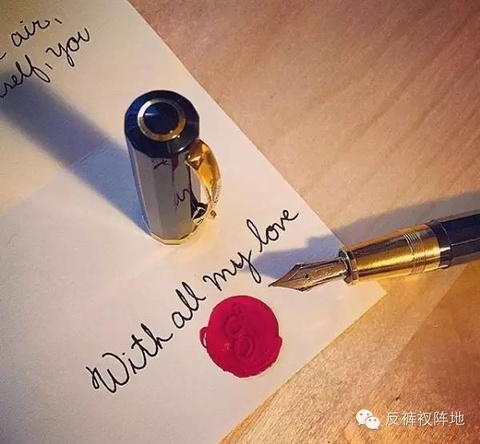 air,
you
With all my love
反裤衩阵地